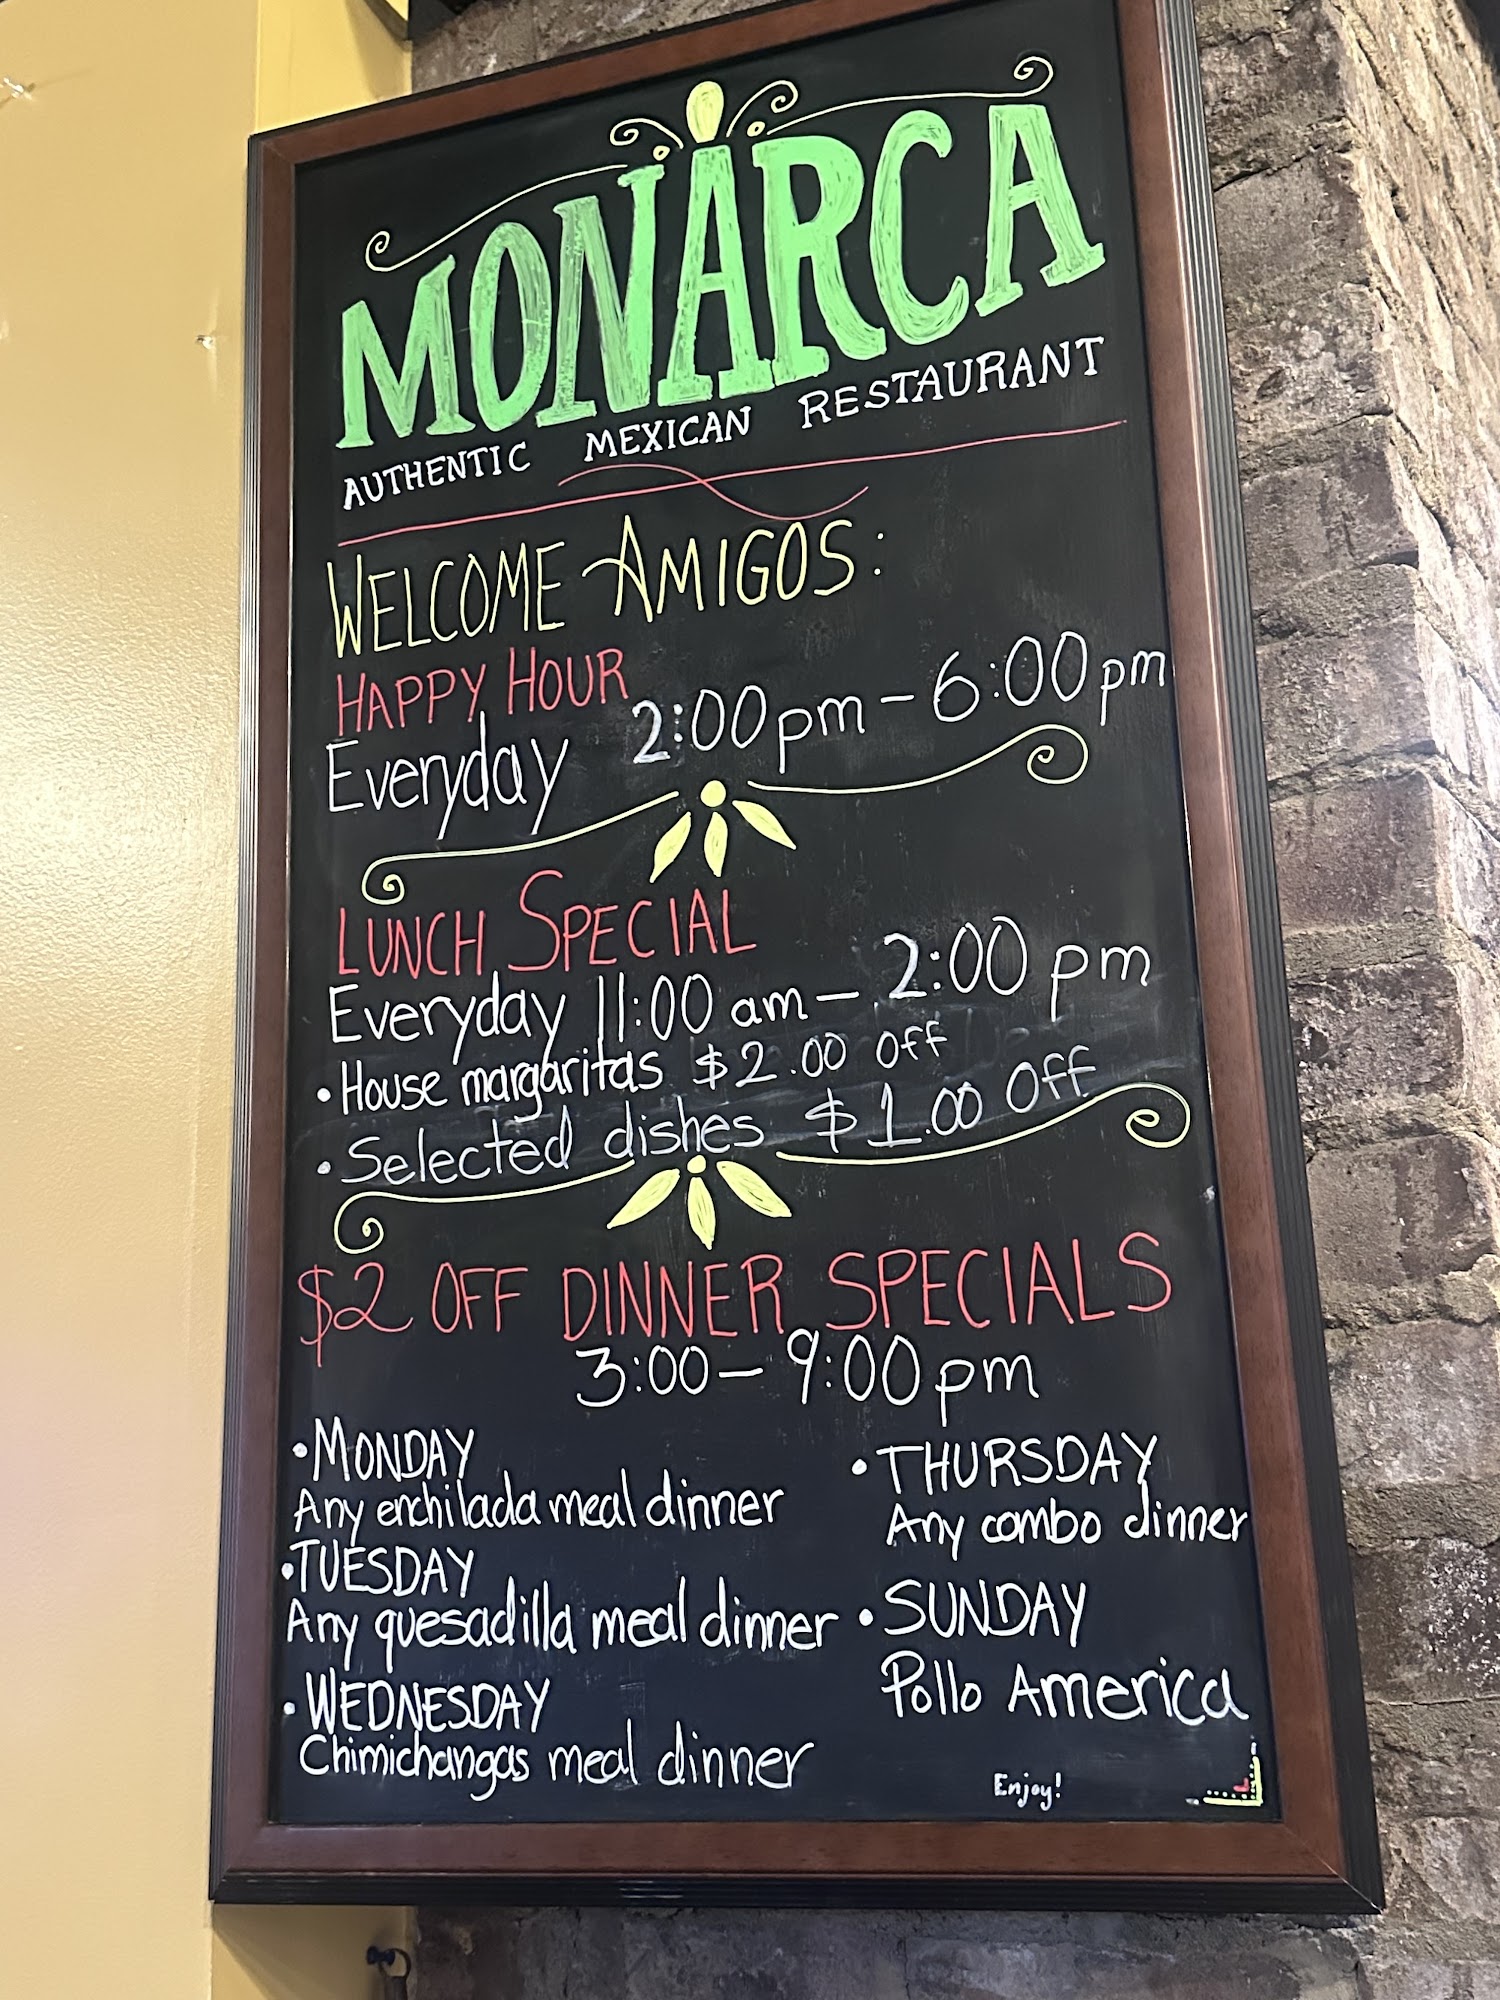 MONARCA
AUTHENTIC MEXICAN RESTAURANT
WELCOME AMIGOS:
HAPPY HOUR
Everyday 2:00 pm - 6:00 pm
LUNCH SPECIAL
Everyday 11:00 am - 2:00 pm
• House margaritas $2.00 Off
• Selected dishes $1.00 Off
$2 OFF DINNER SPECIALS
3:00 - 9:00 pm
• MONDAY
Any enchilada meal dinner
• TUESDAY
Any quesadilla meal dinner
• WEDNESDAY
Chimichangas meal dinner
• THURSDAY
Any combo dinner
• SUNDAY
Pollo America
Enjoy!